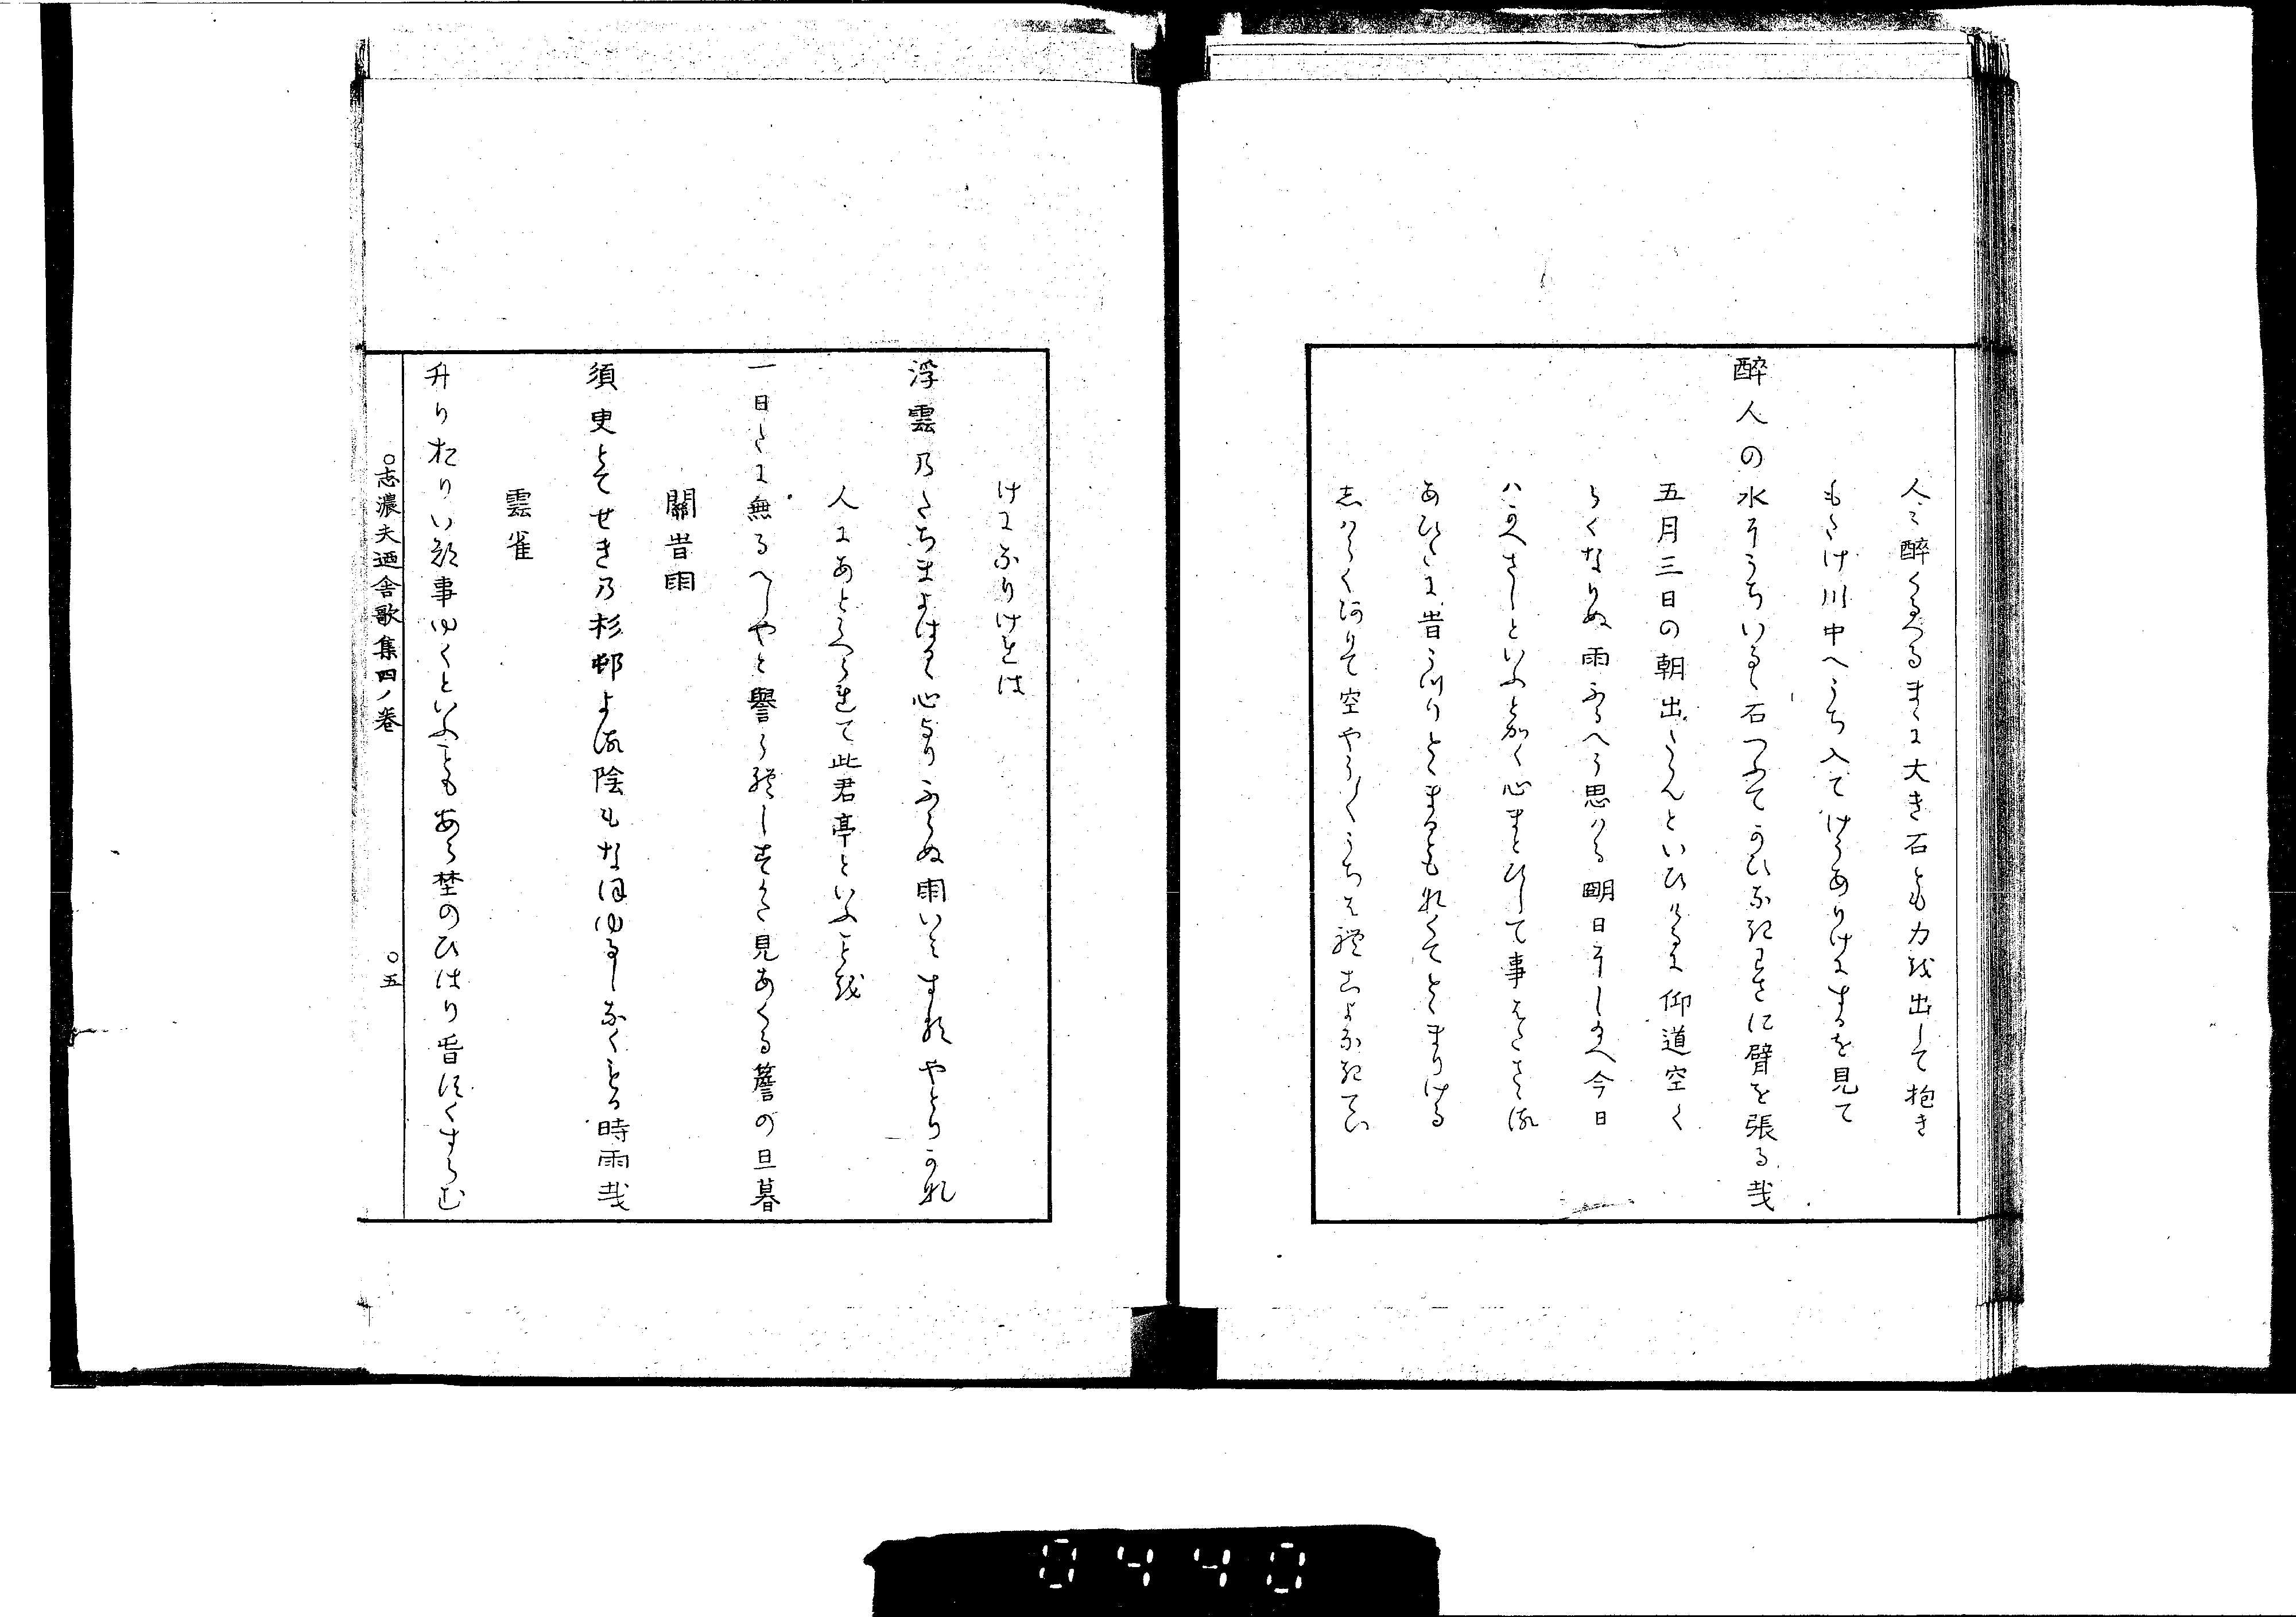 人々醉くるへるまゝに大き石とも力を出して抱き
もたけ川中へうち入てけうありけにするを見て
醉人の水にうちいるゝ石つふてかひなきわさに臂を張る哉
五月三日の朝出たゝんといひけるに仰道空く
らくなりぬ雨ふるへう思はる明日にしたまへ今日
ハかへさしといふとかく心まとひして事はたさゝる
あひたに昔うつりとゝまるともなくてとゝまりける
志はらくありて空やう〱うちはれむよふなきてい
けになりけれは
浮雲のたちまよはるゝ心よりふらぬ雨いみするやとりかな
人にあとらへられて此君亭といふことを
一日たに無るへしやと譽られしすかた見あくる簷の旦暮
關時雨
須臾とてせきの杉邨よる陰もなほゆるしなくもる時雨哉
雲雀
升りおりいる事ゆくといふこともあら埜のひはり時しくすらむ
○志濃夫廼舎歌集四ノ巻
○五
0440